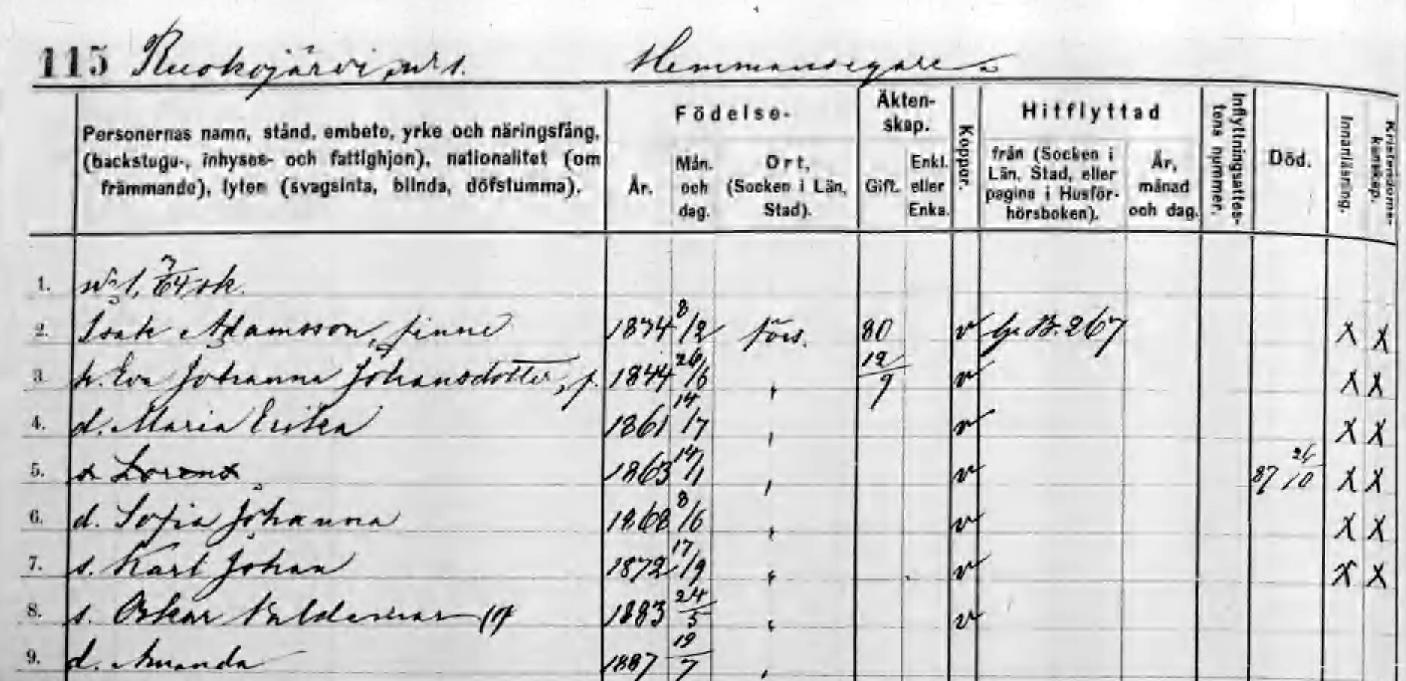 115 Ruokojärvi, nr 1. Hemmansegare
Personernas namn, stånd, embete, yrke och näringsfång, (backstugu-, inhyses- och fattighjon), nationalitet (om främmande), lyten (svagsinta, blinda, döfstumma).
Födelse-
År.
Mån. och dag.
Ort, (Socken i Län, Stad).
Äktenskap.
Gift.
Enkl. eller Enka.
Koppor.
Hitflyttad
från (Socken i Län, Stad, eller pagina i Husförhörsboken).
År, månad och dag.
Inflyttningsattestens nummer.
Död.
Innanläsning.
Kristendomskunskap.
1. nr 1, 7/64 sk.
2. Isak Adamsson, finne 1834 8/2 förs. 80 v 267 X X
3. h. Eva Johanna Johansdotter, f. 1844 26/6 " 12/9 v X X
4. d. Maria Erika 1861 14/7 " v X X
5. s Lorens 1863 14/1 " v 87 24/10 X X
6. d. Sofia Johanna 1868 8/6 " v X X
7. s. Karl Johan 1872 17/9 " v X X
8. s. Oskar Valdemar 1883 24/5 " v
9. d. Amanda 1887 19/7 "